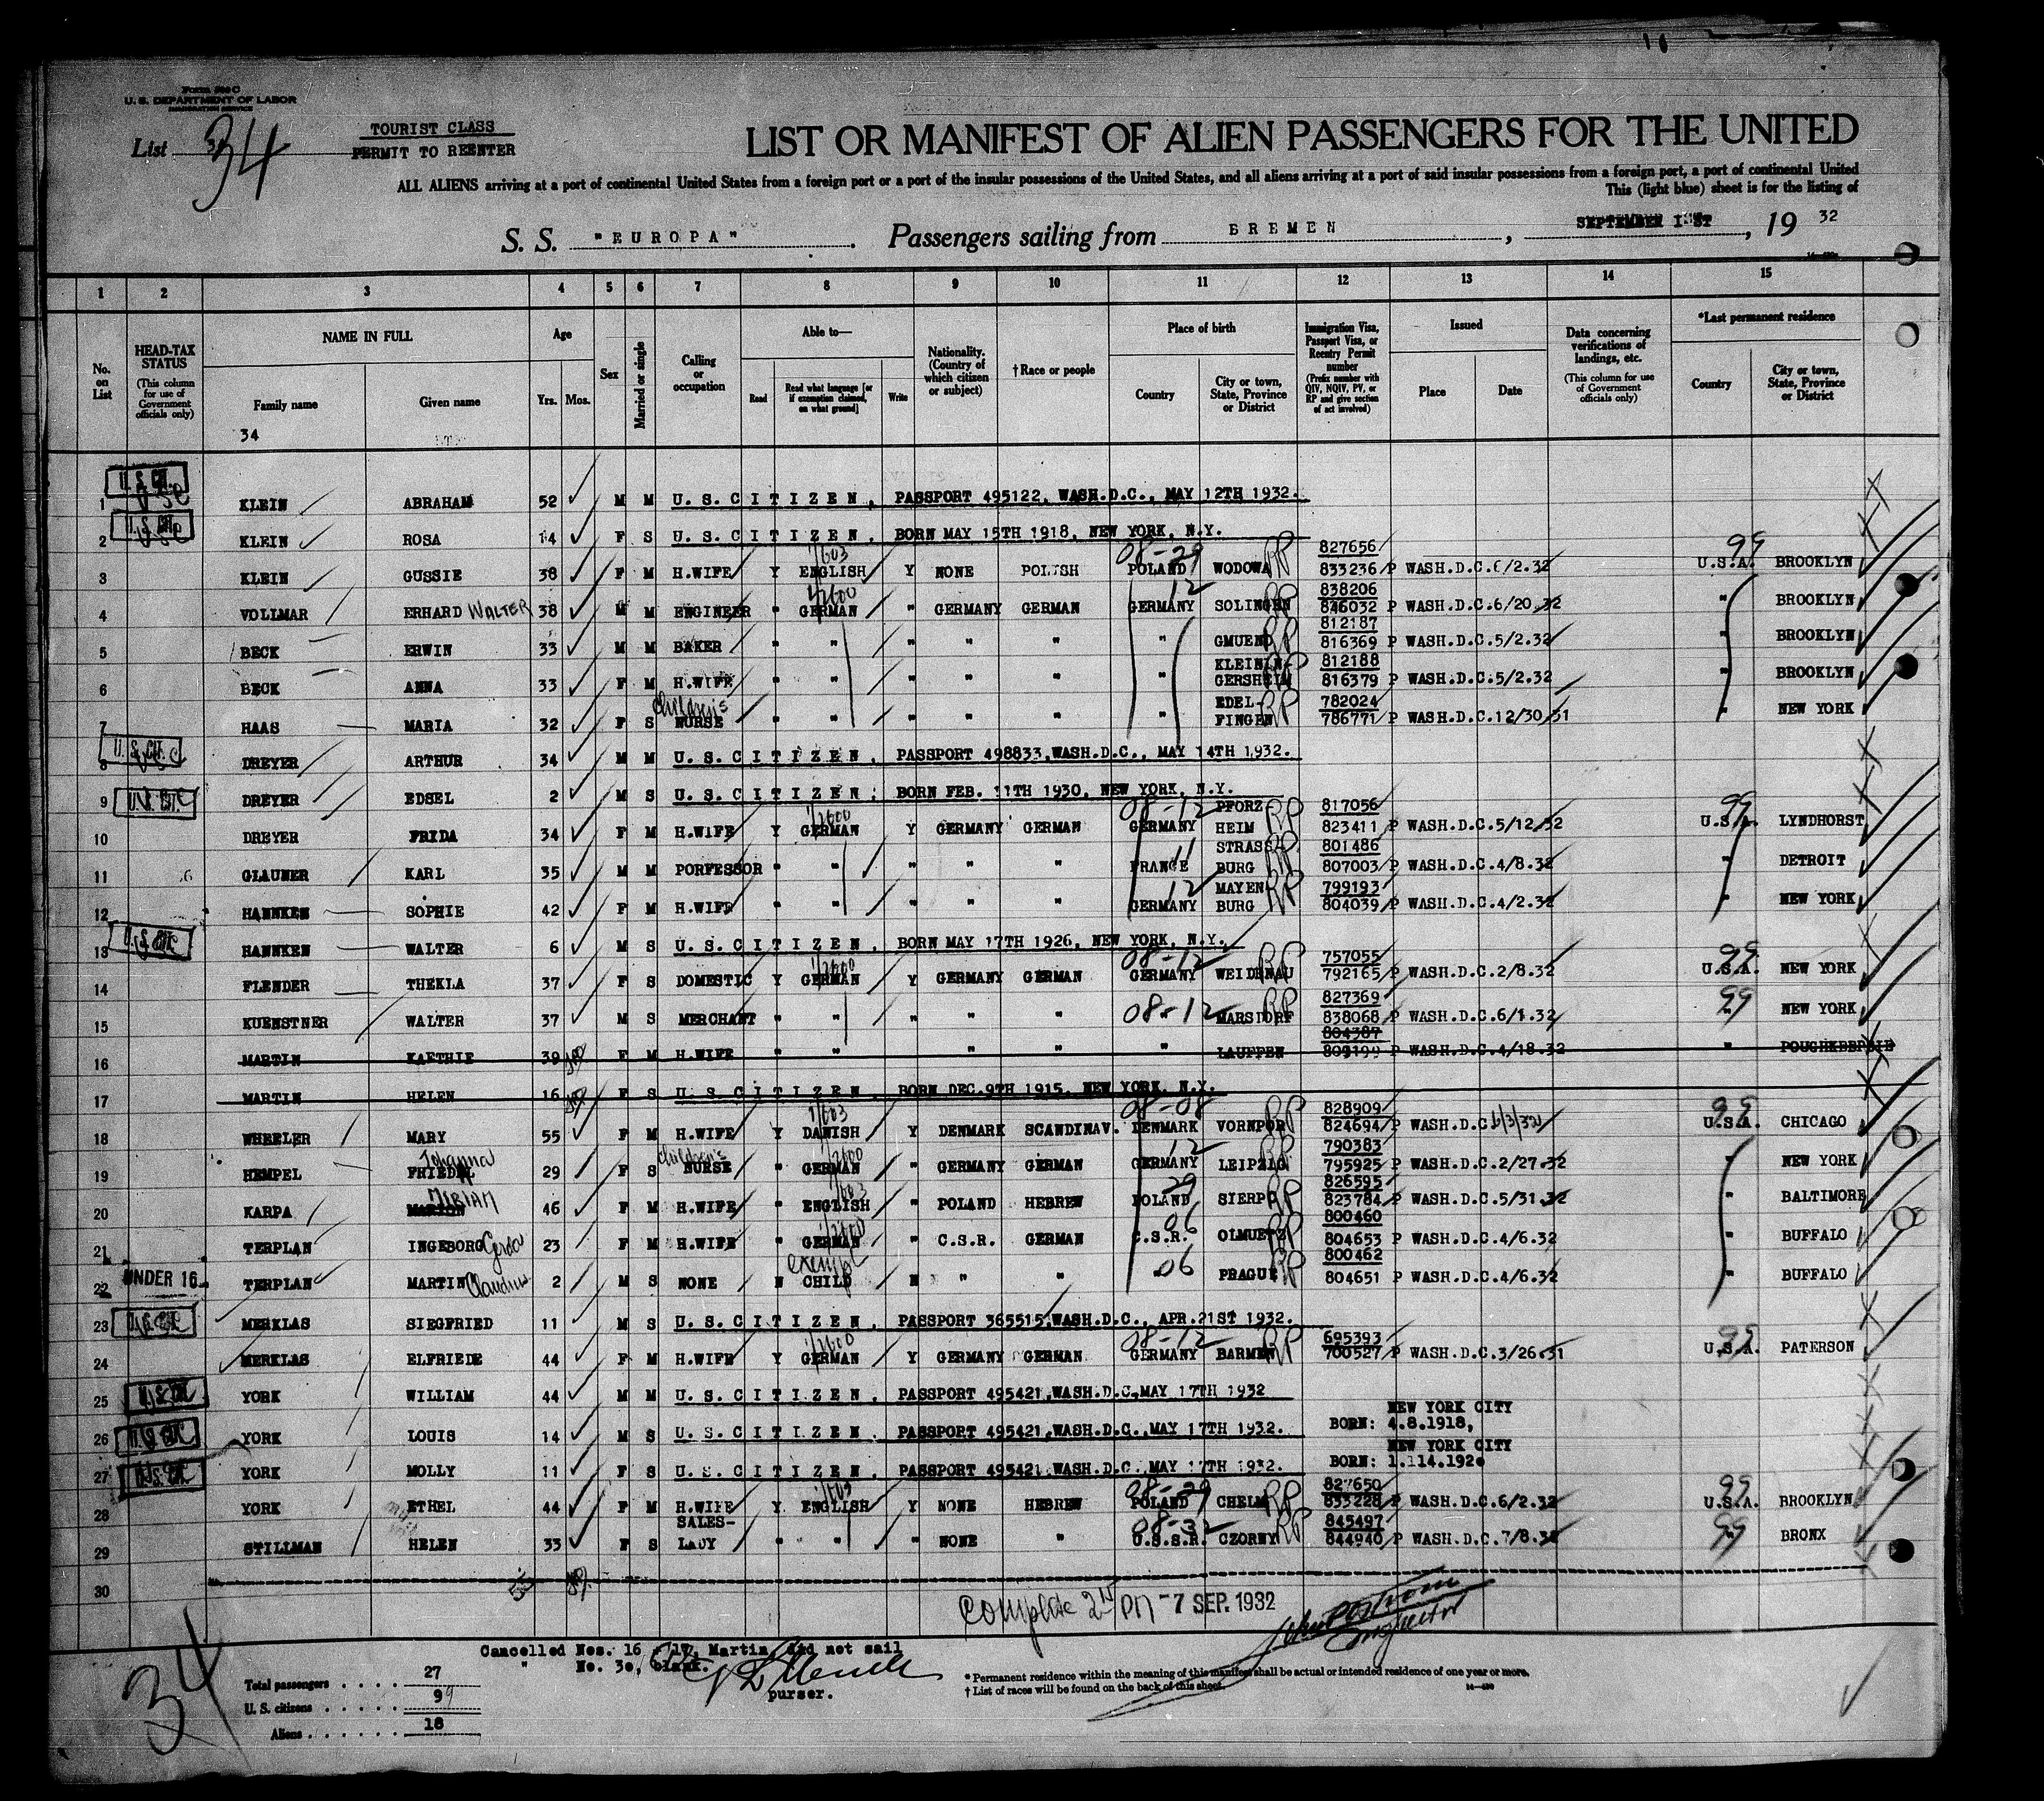 Form 500 C
U. S. DEPARTMENT OF LABOR
IMMIGRATION SERVICE
List 34
TOURIST CLASS
PERMIT TO REENTER
LIST OR MANIFEST OF ALIEN PASSENGERS FOR THE UNITED
ALL ALIENS arriving at a port of continental United States from a foreign port or a port of the insular possessions of the United States, and all aliens arriving at a port of said insular possessions from a foreign port, a port of continental United
This (light blue) sheet is for the listing of
S. S. "EUROPA". Passengers sailing from BREMEN, SEPTEMBER 1ST, 19 32
1 2 3 4 5 6 7 8 9 10 11 12 13 14 15
No. on List
HEAD-TAX STATUS (This column for use of Government officials only)
NAME IN FULL Family name Given name
Age Yrs. Mos.
Sex
Married or single
Calling or occupation
Able to— Read Read what language [or if exemption claimed, on what ground] Write
Nationality. (Country of which citizen or subject)
†Race or people
Place of birth Country City or town, State, Province or District
Immigration Visa, Passport Visa, or Reentry Permit number (Prefix number with QIV, NQIV, PV, or RP and give section of act involved)
Issued Place Date
Data concerning verifications of landings, etc. (This column for use of Government officials only)
*Last permanent residence Country City or town, State, Province or District
34
1 U.S.CIT. USC KLEIN ABRAHAM 52 M M U.S.CITIZEN, PASSPORT 495122, WASH.D.C., MAY 12TH 1932.
2 U.S.CIT. USC KLEIN ROSA 14 F S U.S.CITIZEN, BORN MAY 15TH 1918, NEW YORK, N.Y.
3 KLEIN GUSSIE 38 F M H.WIFE Y ENGLISH 1/603 Y NONE POLISH 08-29 POLAND WODOWA RP 827656 833236 P WASH.D.C. 6/2.32 99 U.S.A. BROOKLYN
4 VOLLMAR ERHARD WALTER 38 M M ENGINEER " GERMAN 1/2600 " GERMANY GERMAN 12 GERMANY SOLINGEN RP 838206 846032 P WASH.D.C. 6/20.32 " BROOKLYN
5 BECK ERWIN 33 M M BAKER " " " " " " GMUEND RP 812187 816369 P WASH.D.C. 5/2.32 " BROOKLYN
6 BECK ANNA 33 F M H.WIFE " " " " " " KLEININ- GERSHEIM RP 812188 816379 P WASH.D.C. 5/2.32 " BROOKLYN
7 HAAS MARIA 32 F S children's NURSE " " " " " " EDEL- FINGEN RP 782024 786771 P WASH.D.C. 12/30.31 " NEW YORK
8 U.S.CIT. USC DREYER ARTHUR 34 M M U.S.CITIZEN, PASSPORT 498833, WASH.D.C., MAY 14TH 1932.
9 U.S.CIT. USC DREYER EDSEL 2 M S U.S.CITIZEN, BORN FEB. 11TH 1930, NEW YORK, N.Y.
10 DREYER FRIDA 34 F M H.WIFE Y GERMAN 1/2600 Y GERMANY GERMAN 08-12 GERMANY PFORZ- HEIM RP 817056 823411 P WASH.D.C. 5/12.32 99 U.S.A. LYNDHORST
11 GLAUNER KARL 35 M M PORFESSOR " " " " " 11 FRANCE STRASS- BURG RP 801486 807003 P WASH.D.C. 4/8.32 " DETROIT
12 HANNKEN SOPHIE 42 F M H.WIFE " " " " " 12 GERMANY MAYEN BURG RP 799193 804039 P WASH.D.C. 4/2.32 " NEW YORK
13 U.S.CIT. USC HANNKEN WALTER 6 M S U.S.CITIZEN, BORN MAY 17TH 1926, NEW YORK, N.Y.
14 FLENDER THEKLA 37 F S DOMESTIC Y GERMAN 1/2600 Y GERMANY GERMAN 08-12 GERMANY WEIDENAU RP 757055 792165 P WASH.D.C. 2/8.32 99 U.S.A. NEW YORK
15 KUENSTNER WALTER 37 M S MERCHANT " " " " " 08-12 MARSDORF RP 827369 838068 P WASH.D.C. 6/1.32 99 NEW YORK
16 MARTIN KAETHIE 39 F M H.WIFE " " " " " LAUFFEN 804387 809199 P WASH.D.C. 4/18.32 " POUGHKEEPSIE
17 MARTIN HELEN 16 F S U.S.CITIZEN, BORN DEC. 9TH 1915, NEW YORK, N.Y.
18 WHEELER MARY 55 F M H.WIFE Y DANISH 1/603 Y DENMARK SCANDINAV. 08-08 DENMARK VORNPOR RP 828909 824694 P WASH.D.C. 6/3/32 99 U.S.A. CHICAGO
19 HEMPEL FRIEDEL Johanna 29 F S children's NURSE " GERMAN 1/2600 " GERMANY GERMAN 12 GERMANY LEIPZIG RP 790383 795925 P WASH.D.C. 2/27.32 " NEW YORK
20 KARPA MARION MIRIAM 46 F M H.WIFE " ENGLISH 1/603 " POLAND HEBREW 29 POLAND SIERPC RP 826595 823784 P WASH.D.C. 5/31.32 " BALTIMORE
21 TERPLAN INGEBORG Gerda 23 F M H.WIFE " GERMAN 1/2600 " C.S.R. GERMAN 06 C.S.R. OLMUETZ RP 800460 804653 P WASH.D.C. 4/6.32 " BUFFALO
22 UNDER 16 TERPLAN MARTIN Claudius 2 M S NONE N exempt CHILD N " " 06 PRAGUE RP 800462 804651 P WASH.D.C. 4/6.32 " BUFFALO
23 U.S.CIT. USC MERKLAS SIEGFRIED 11 M S U.S.CITIZEN, PASSPORT 365515, WASH.D.C., APR. 21ST 1932.
24 MERKLAS ELFRIEDE 44 F M H.WIFE Y GERMAN 1/2600 Y GERMANY GERMAN 08-12 GERMANY BARMEN RP 695393 700527 P WASH.D.C. 3/26.31 99 U.S.A. PATERSON
25 U.S.CIT. YORK WILLIAM 44 M M U.S.CITIZEN, PASSPORT 495421, WASH.D.C., MAY 17TH 1932
26 U.S.CIT. USC YORK LOUIS 14 M S U.S.CITIZEN, PASSPORT 495421, WASH.D.C., MAY 17TH 1932. NEW YORK CITY BORN: 4.8.1918,
27 U.S.CIT. YORK MOLLY 11 F S U.S.CITIZEN, PASSPORT 495421, WASH.D.C., MAY 17TH 1932. NEW YORK CITY BORN: 1.114.1920
28 YORK ETHEL 44 F M H.WIFE Y ENGLISH 1/603 Y NONE HEBREW 08-29 POLAND CHELM RP 827650 833228 P WASH.D.C. 6/2.32 99 U.S.A. BROOKLYN
29 STILLMAN HELEN 33 F S SALES- LADY " " " NONE " 08-32 U.S.S.R. CZORNY RP 845497 844940 P WASH.D.C. 7/8.32 99 BRONX
30
complete 2nd PM -7 SEP. 1932
Inspector
Cancelled Nos. 16 - 17, Martin, did not sail
" No. 30, blank.
purser.
34
Total passengers 27
U. S. citizens 9
Aliens 18
*Permanent residence within the meaning of this manifest shall be actual or intended residence of one year or more.
†List of races will be found on the back of this sheet.